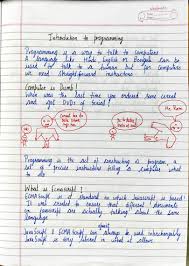 Introduction to programming
Programming is a way to talk to computers
A language like Hindi English or Bengali can be
used to talk to a human but for computers
we need straightforward instructions
Computer is Dumb!
When was the last time you ordered some cereal
and got DVDs of serial!
Programming is the act of constructing a program, a
set of precise instructions telling a computer what
to do
What is Ecmascript!
ECMAScript is a standard on which Javascript is based!
It was created to ensure that different documents
on javascript are actually talking about the same
language
JavaScript & ECMAScript can always be used interchangeably
JavaScript is very liberal in what it allows